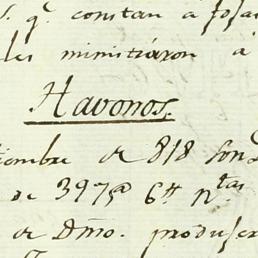 s. qe. constan á foxa
les ministráron á
Havonos.
tiembre de 818 son
de 3975 6 ntas
de Dmo. produser